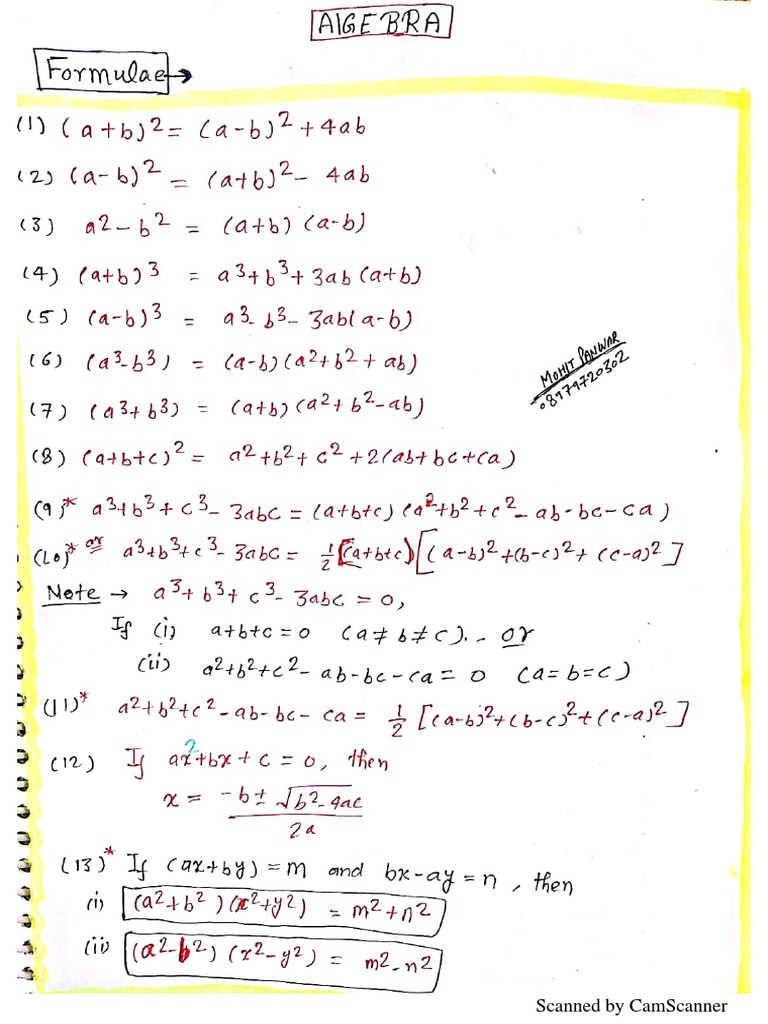 AlGEBRA
Formulae→
(1) (a+b)² = (a-b)² + 4ab
(2) (a-b)² = (a+b)² - 4ab
(3) a² - b² = (a+b) (a-b)
(4) (a+b)³ = a³ + b³ + 3ab (a+b)
(5) (a-b)³ = a³ - b³ - 3ab(a-b)
(6) (a³-b³) = (a-b) (a² + b² + ab)
MOHIT PANWAR
08979720302
(7) (a³+b³) = (a+b) (a² + b² - ab)
(8) (a+b+c)² = a² + b² + c² + 2(ab + bc + ca)
(9)* a³+b³+c³ - 3abc = (a+b+c) (a²+b²+c² - ab - bc - ca)
(10)* or a³+b³+c³ - 3abc = 1/2 (a+b+c) [(a-b)² + (b-c)² + (c-a)²]
Note → a³ + b³ + c³ - 3abc = 0,
If (i) a+b+c = 0 (a ≠ b ≠ c).. or
(ii) a²+b²+c² - ab - bc - ca = 0 (a = b = c)
(11)* a²+b²+c² - ab - bc - ca = 1/2 [(a-b)² + (b-c)² + (c-a)²]
(12) If ax² + bx + c = 0, then
x = -b ± √b² - 4ac
2a
(13)* If (ax+by) = m and bx - ay = n, then
(i) (a² + b²) (x² + y²) = m² + n²
(ii) (a² - b²) (x² - y²) = m² - n²
Scanned by CamScanner